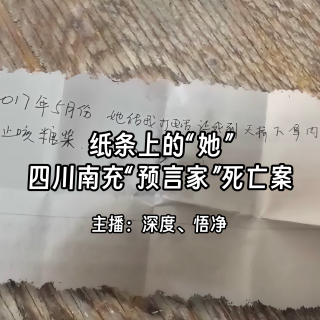 017年5月份 她给我打电话让我到天桥下
止咳糖浆
纸条上的“她”
四川南充“预言家”死亡案
主播：深度、悟净